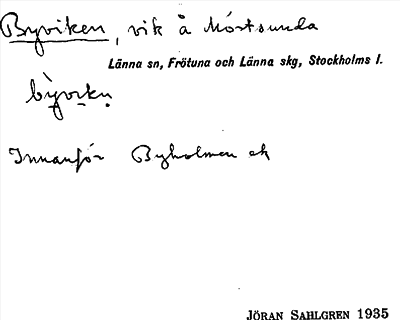 Byviken, vik å Mörtsunda
Länna sn, Frötuna och Länna skg, Stockholms l.
bỳvikn̥
Innanför Byholmen ek
JÖRAN SAHLGREN 1935